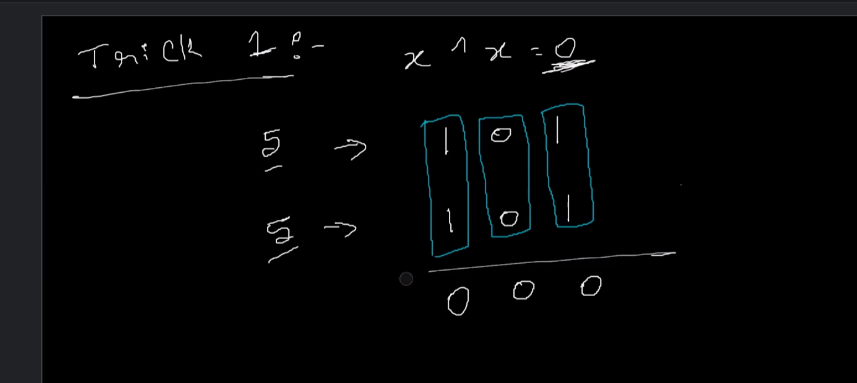 Trick 1 :- x ^ x = 0
5 → 1 0 1
5 → 1 0 1
0 0 0